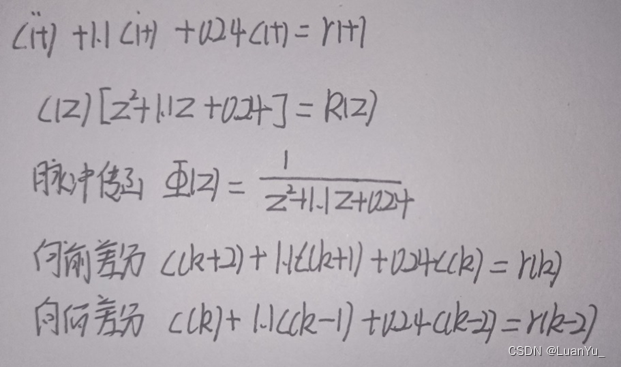 c̈(t) + 1.1ċ(t) + 0.24c(t) = r(t)
C(z)[z²+1.1z+0.24] = R(z)
脉冲传函 Φ(z) = 1/(z²+1.1z+0.24)
向前差分 c(k+2) + 1.1c(k+1) + 0.24c(k) = r(k)
向后差分 c(k) + 1.1c(k-1) + 0.24c(k-2) = r(k-2)
CSDN @LuanYu_